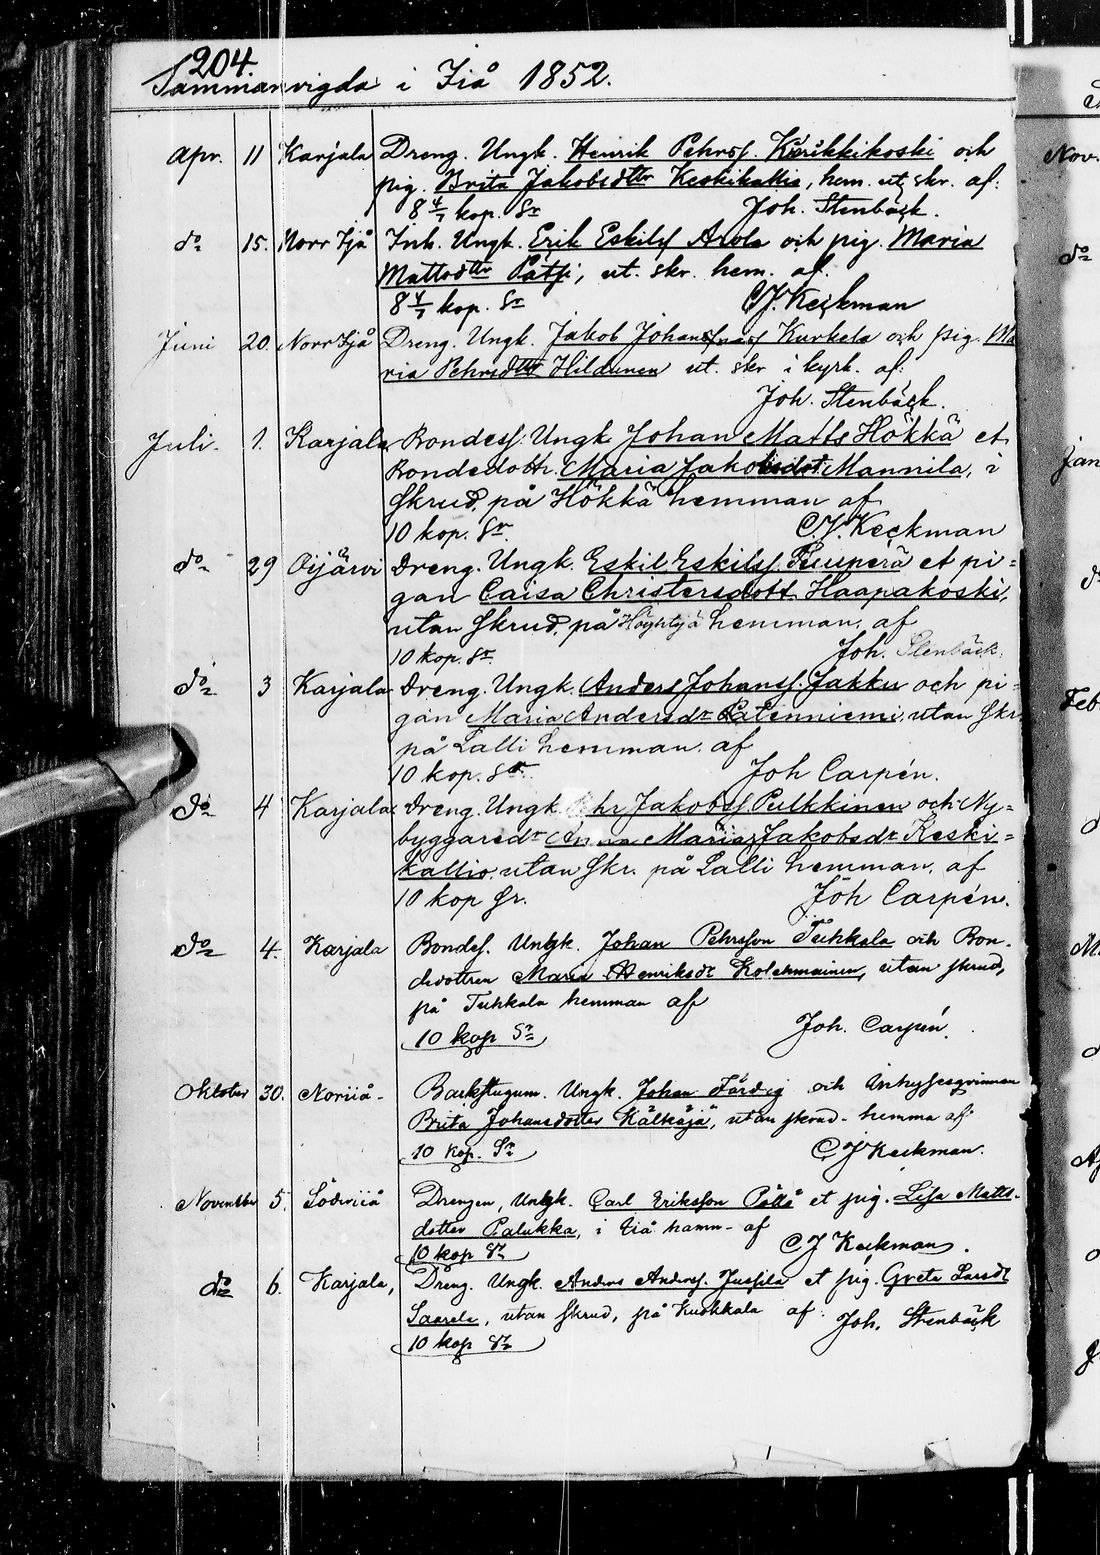 204.
Sammanvigda i Iiå 1852.
Apr. 11 Karjala Dreng. Ungk. Henrik Pehrsf. Kurikkikoski och
pig. Brita Jakobsdttr Keskikallio, hem. ut. skr. af:
8 4/7 kop. Sr Joh. Stenbäck.
do 15. Norr Ijå Inh. Ungk. Erik Eskilsf Arola och pig. Maria
Mattsdttr Pätsi, ut. skr. hem. af.
8 4/7 kop. Sr CJ. Keckman
Juni 20. Norr Ijå Dreng. Ungk. Jakob Johansson Kurkela och pig. Ma
ria Pehrsdttr Hildunen ut. skr i kyrk. af:
Joh. Stenbäck.
Juli. 1. Karjala Bondesf. Ungk. Johan Matts Hökkä et
Bondedottr. Maria Jakobsdot. Mannila, i
Skrud, på Hökkä hemman af
10 kop. Sr. C.J. Keckman
do 29 Oijärvi Dreng. Ungk. Eskil Eskilsf. Kuuperä et pi=
gan Caisa Christersdott. Haapakoski,
utan Skrud, på hemman, af
10 kop. Sr. Joh. Stenbäck.
do 3 Karjala Dreng. Ungk. Anders Johansf. Jakku och pi=
gan Maria Andersdr Satenniemi utan Skr.
på Lalli hemman, af
10 kop. Sr. Joh Carpén.
do 4 Karjala Dreng. Ungk. Pehr Jakobsf Pulkkinen och Ny=
byggaredr Anna Maria Jakobsdr Keski=
kallio, utan Skr. på Lalli hemman, af
10 kop Sr. Joh Carpén.
do 4. Karjala Bondes. Ungk. Johan Pehrsson Tuhkala och Bon-
dedottren Maria Henriksdr Kolehmainen, utan skrud,
på Tuhkala hemman af
10 kop Sr Joh. Carpén.
Oktober 30. Norriiå - Backstugum. Ungk. Johan Färdig och Inhysesqvinnan
Brita Johansdotter Kälkäjä, utan skrud - hemma af
10 kop. Sr C J Keckman.
November 5. Söderiiå Drengen, Ungk. Carl Eriksson Pällä et pig. Lisa Matts-
dotter Palukka, i Iiå hamn - af
10 kop Sr C J Keckman.
do 6. Karjala, Dreng. Ungk. Anders Andersf. Jussila et pig. Greta Larsdr
Saarela, utan skrud, på Kuohkala af:
10 kop Sr Joh. Stenbäck
Nov.
do
Feb.